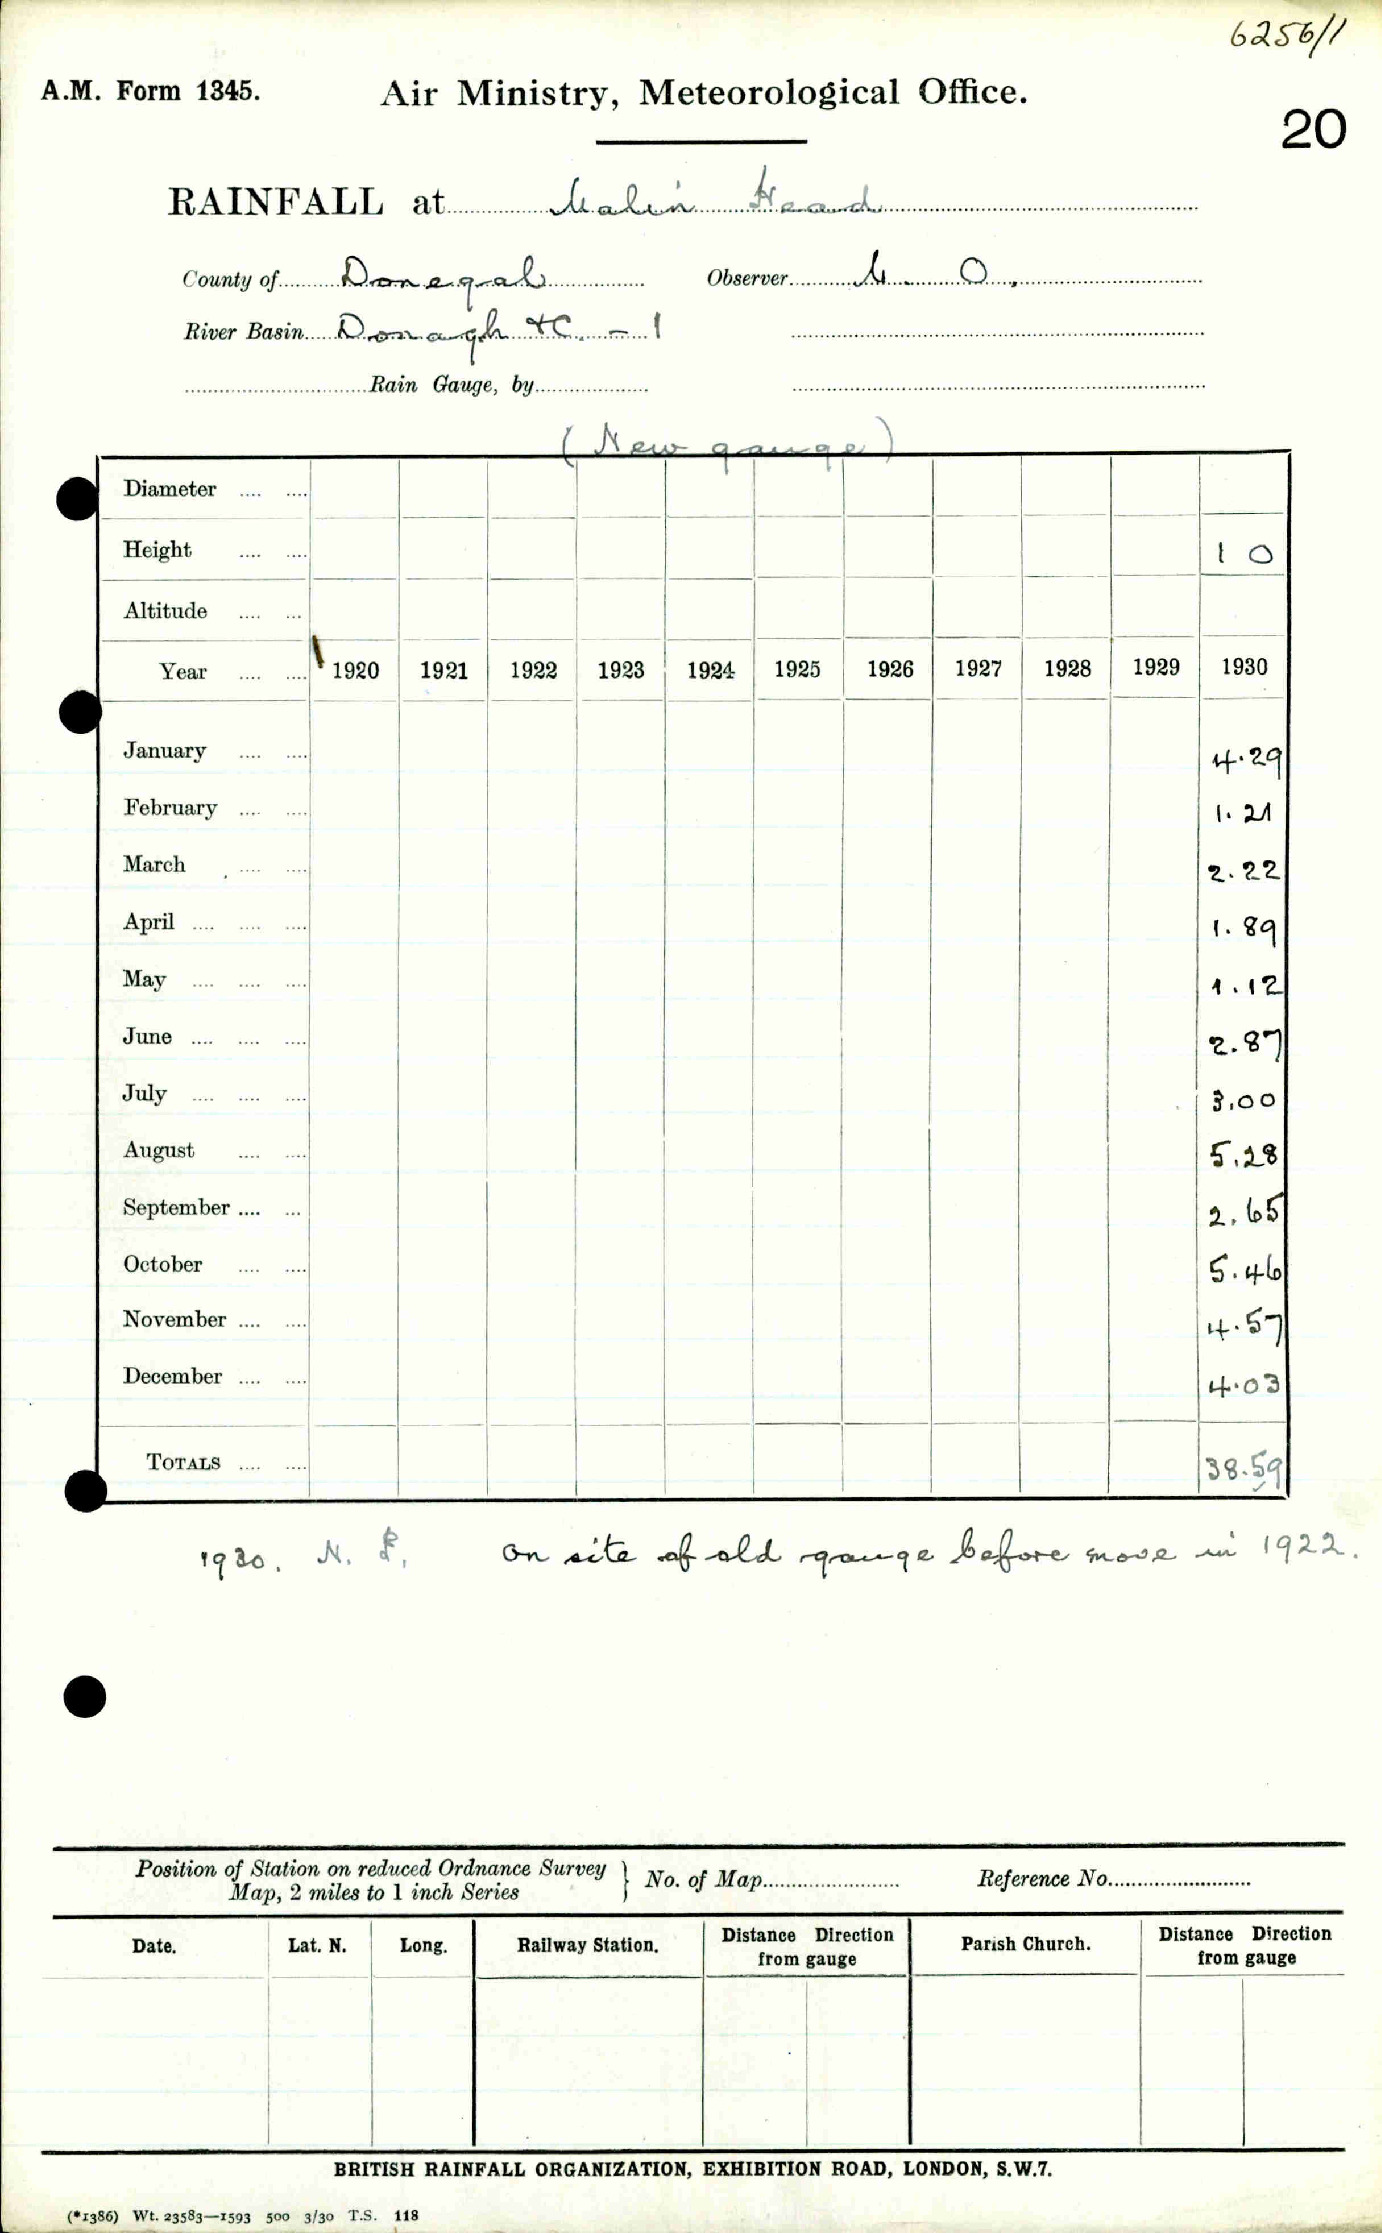 6256/1
A.M. Form 1345.
Air Ministry, Meteorological Office.
20
RAINFALL at Malin Head
County of Donegal Observer M. O.
River Basin Donagh &C. - 1
Rain Gauge, by
(New gauge)
Diameter
Height 1 0
Altitude
Year 1920 1921 1922 1923 1924 1925 1926 1927 1928 1929 1930
January 4.29
February 1.21
March 2.22
April 1.89
May 1.12
June 2.87
July 3.00
August 5.28
September 2.65
October 5.46
November 4.57
December 4.03
TOTALS 38.59
1930. N. on site of old gauge before move in 1922.
Position of Station on reduced Ordnance Survey
Map, 2 miles to 1 inch Series
} No. of Map Reference No.
Date. Lat. N. Long. Railway Station. Distance Direction from gauge Parish Church. Distance Direction from gauge
BRITISH RAINFALL ORGANIZATION, EXHIBITION ROAD, LONDON, S.W.7.
(*1386) Wt. 23583—1593 500 3/30 T.S. 118